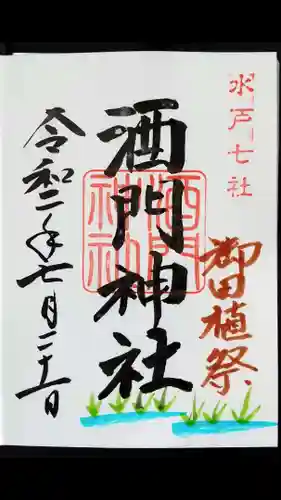 水戸七社
御田植祭
酒門神社
酒門
神社
令和二年七月二十一日